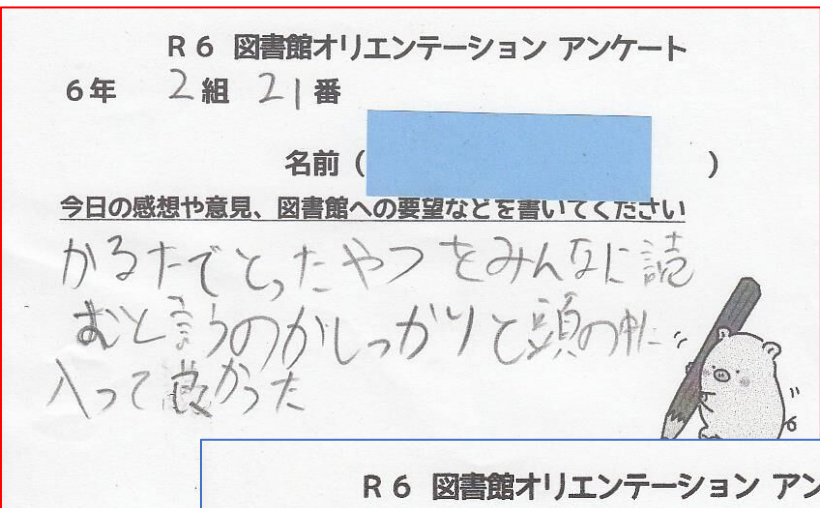 R6 図書館オリエンテーション アンケート
6年 2組 21番
名前( )
今日の感想や意見、図書館への要望などを書いてください
かるたでとったやつをみんなに読
むと言うのがしっかりと頭の中に
入って良かった
R6 図書館オリエンテーション アン